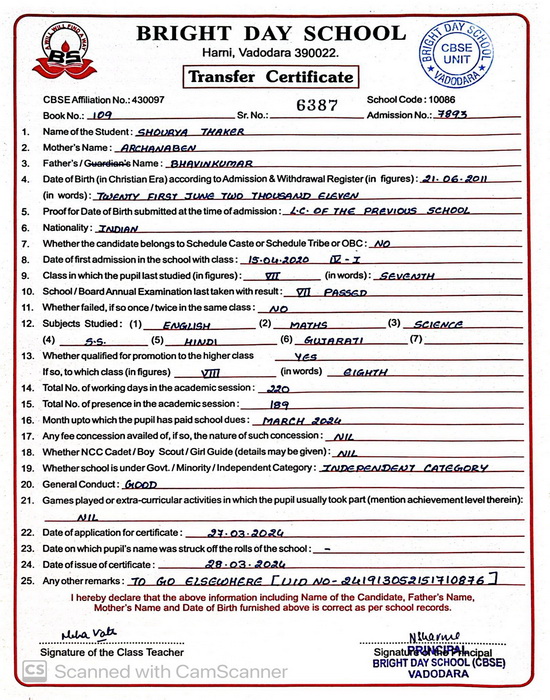 A WILL WILL FIND A WAY
BS
BRIGHT DAY SCHOOL
Harni, Vadodara 390022.
Transfer Certificate
BRIGHT DAY SCHOOL
CBSE
UNIT
VADODARA
CBSE Affiliation No.: 430097 6387 School Code : 10086
Book No.: 109 Sr. No.: Admission No.: 7893
1. Name of the Student : SHOURYA THAKER
2. Mother's Name : ARCHANABEN
3. Father's / Guardian's Name : BHAVINKUMAR
4. Date of Birth (in Christian Era) according to Admission & Withdrawal Register (in figures) : 21-06-2011
(in words) : TWENTY FIRST JUNE TWO THOUSAND ELEVEN
5. Proof for Date of Birth submitted at the time of admission : L.C. OF THE PREVIOUS SCHOOL
6. Nationality : INDIAN
7. Whether the candidate belongs to Schedule Caste or Schedule Tribe or OBC : NO
8. Date of first admission in the school with class : 15-04-2020 IV - I
9. Class in which the pupil last studied (in figures) : VII (in words) : SEVENTH
10. School / Board Annual Examination last taken with result : VII PASSED
11. Whether failed, if so once / twice in the same class : NO
12. Subjects Studied : (1) ENGLISH (2) MATHS (3) SCIENCE
(4) S.S. (5) HINDI (6) GUJARATI (7)
13. Whether qualified for promotion to the higher class YES
If so, to which class (in figures) VIII (in words) EIGHTH
14. Total No. of working days in the academic session : 220
15. Total No. of presence in the academic session : 189
16. Month upto which the pupil has paid school dues : MARCH 2024
17. Any fee concession availed of, if so, the nature of such concession : NIL
18. Whether NCC Cadet / Boy Scout / Girl Guide (details may be given) : NIL
19. Whether school is under Govt. / Minority / Independent Category : INDEPENDENT CATEGORY
20. General Conduct : GOOD
21. Games played or extra-curricular activities in which the pupil usually took part (mention achievement level therein):
NIL
22. Date of application for certificate : 27-03-2024
23. Date on which pupil's name was struck off the rolls of the school : -
24. Date of issue of certificate : 28-03-2024
25. Any other remarks : TO GO ELSEWHERE [UID NO- 241913052151710876]
I hereby declare that the above information including Name of the Candidate, Father's Name,
Mother's Name and Date of Birth furnished above is correct as per school records.
Signature of the Class Teacher Signature of the Principal
PRINCIPAL
BRIGHT DAY SCHOOL (CBSE)
VADODARA
CS Scanned with CamScanner